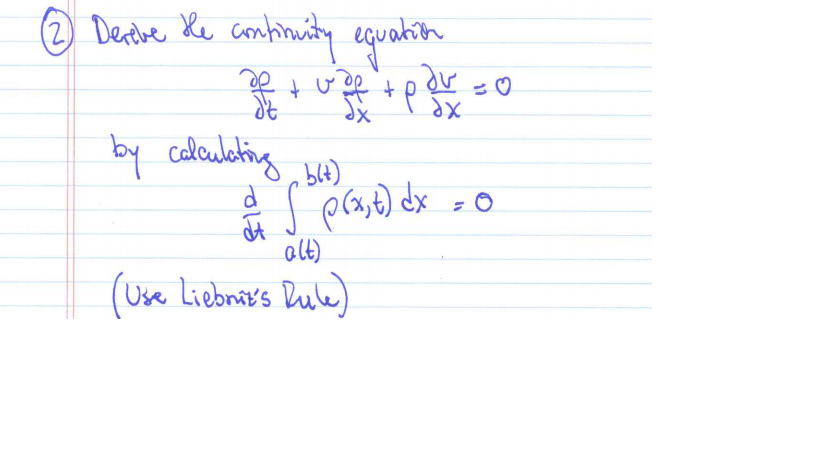 ② Derive the continuity equation
∂ρ/∂t + v ∂ρ/∂x + ρ ∂v/∂x = 0
by calculating
d/dt ∫_{a(t)}^{b(t)} ρ(x,t) dx = 0
(Use Liebniz's Rule)